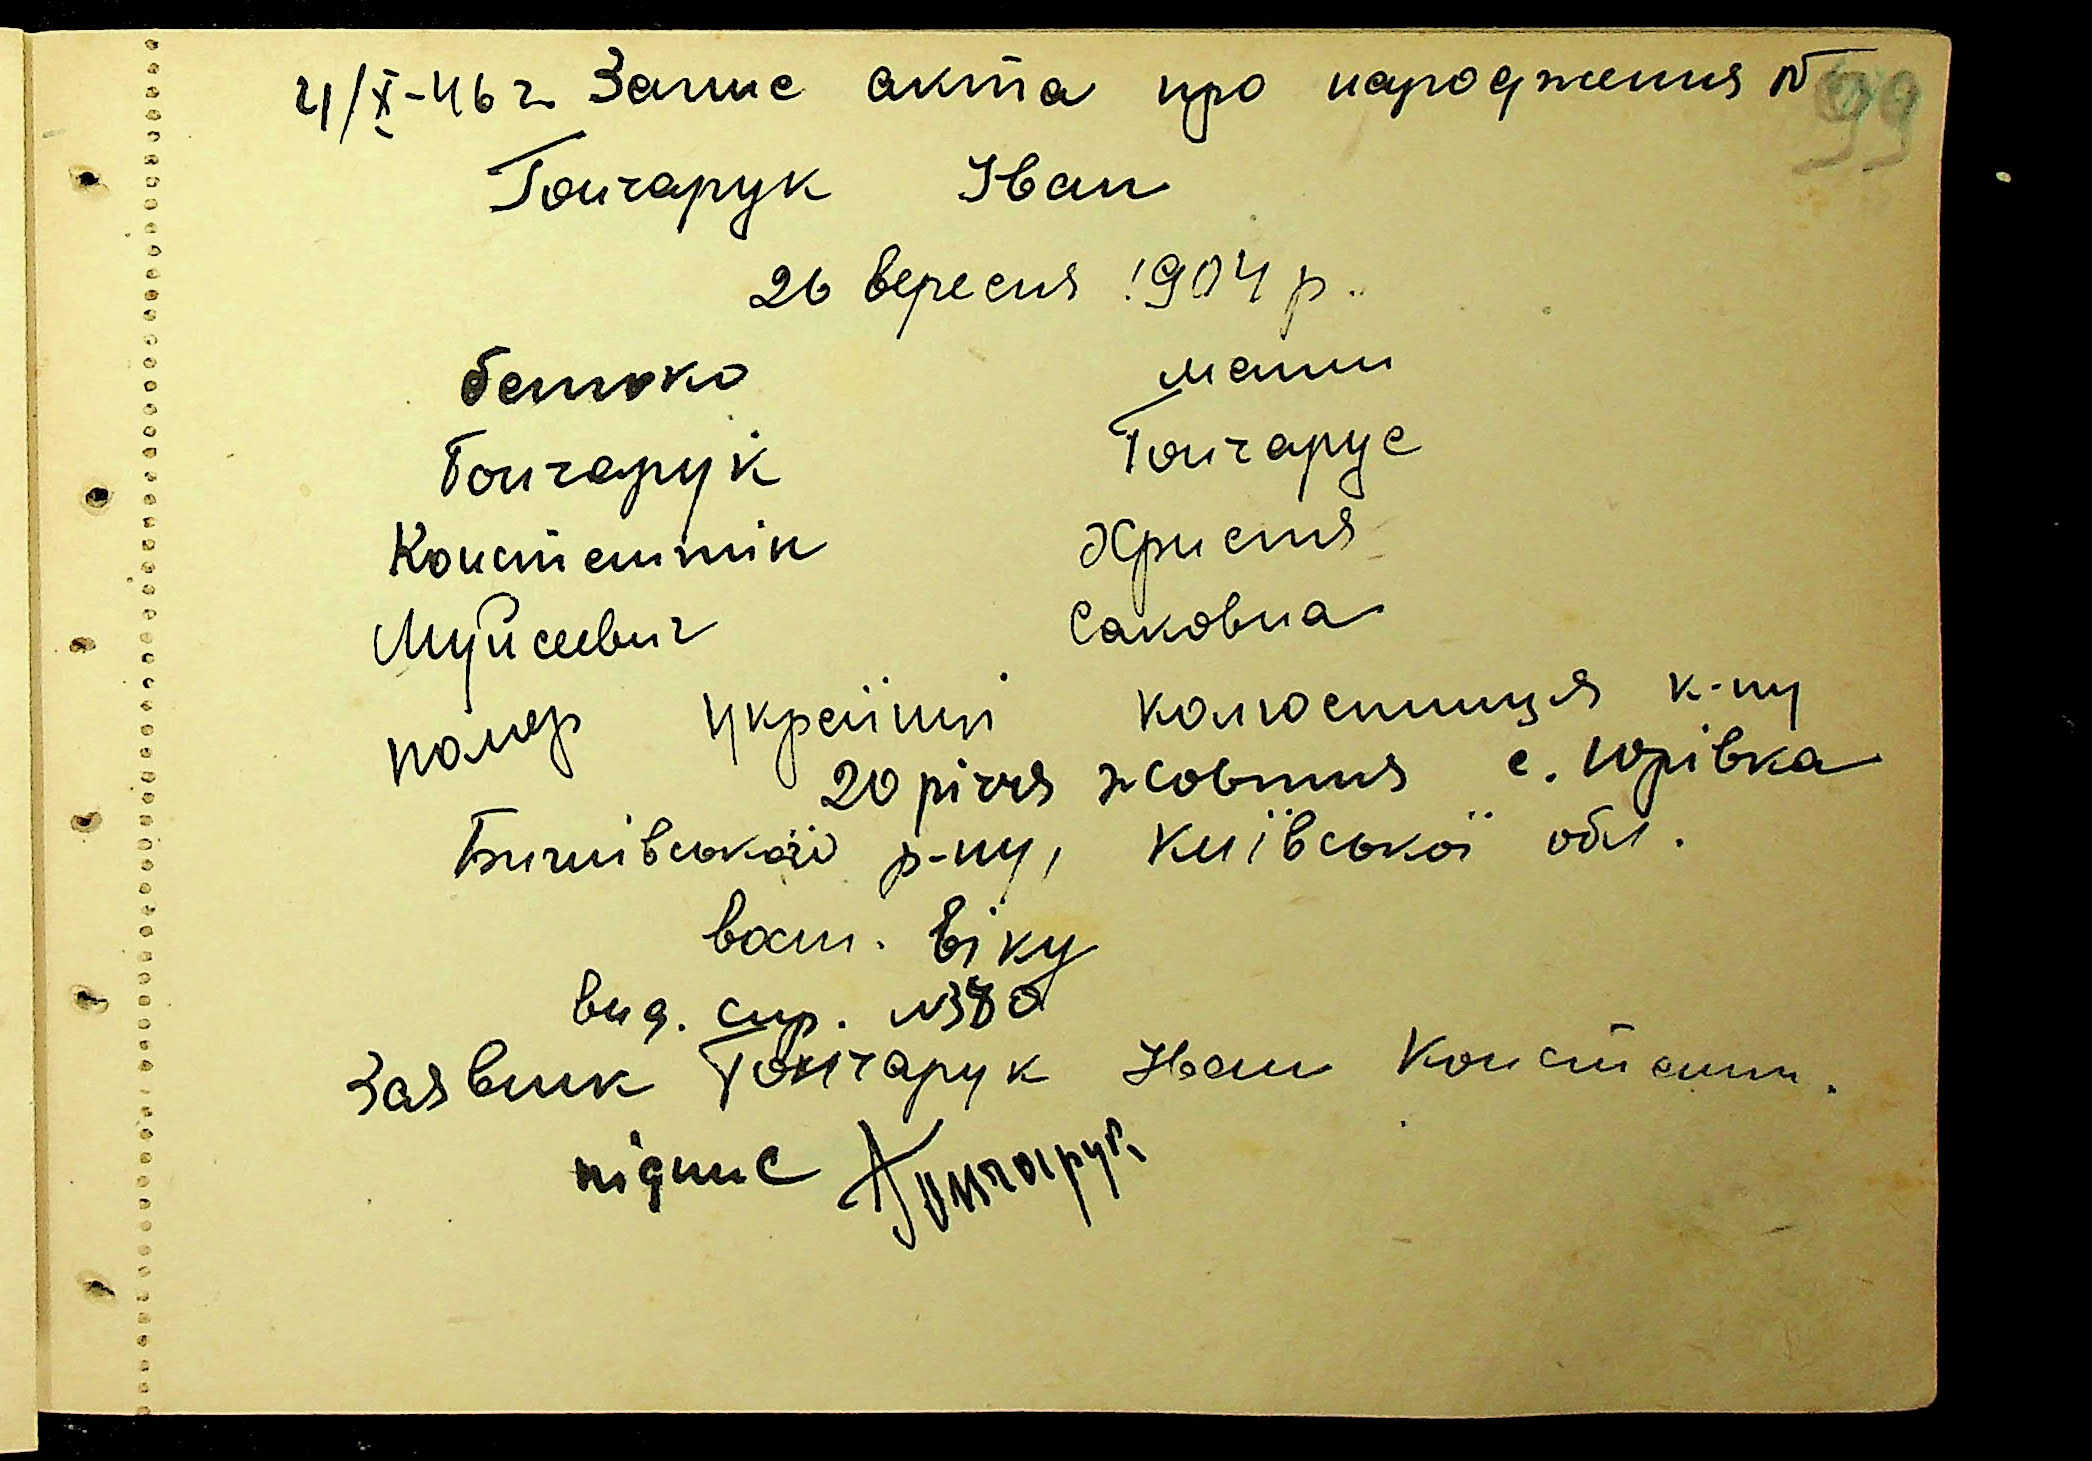 4/X-46 г. Запис акта про народження №
99
Гончарук Іван
26 вересня 1904 р.
батько мати
Гончарук Гончарук
Константін Христя
Муйсеевич Саковна
помер українці колгоспниця к-пу
20 річчя жовтня с. Юрівка
Бишівської р-ну, Київської обл.
вост. віку
вид. спр. №380
Заявник Гончарук Іван Констант.
підпис Гончарук